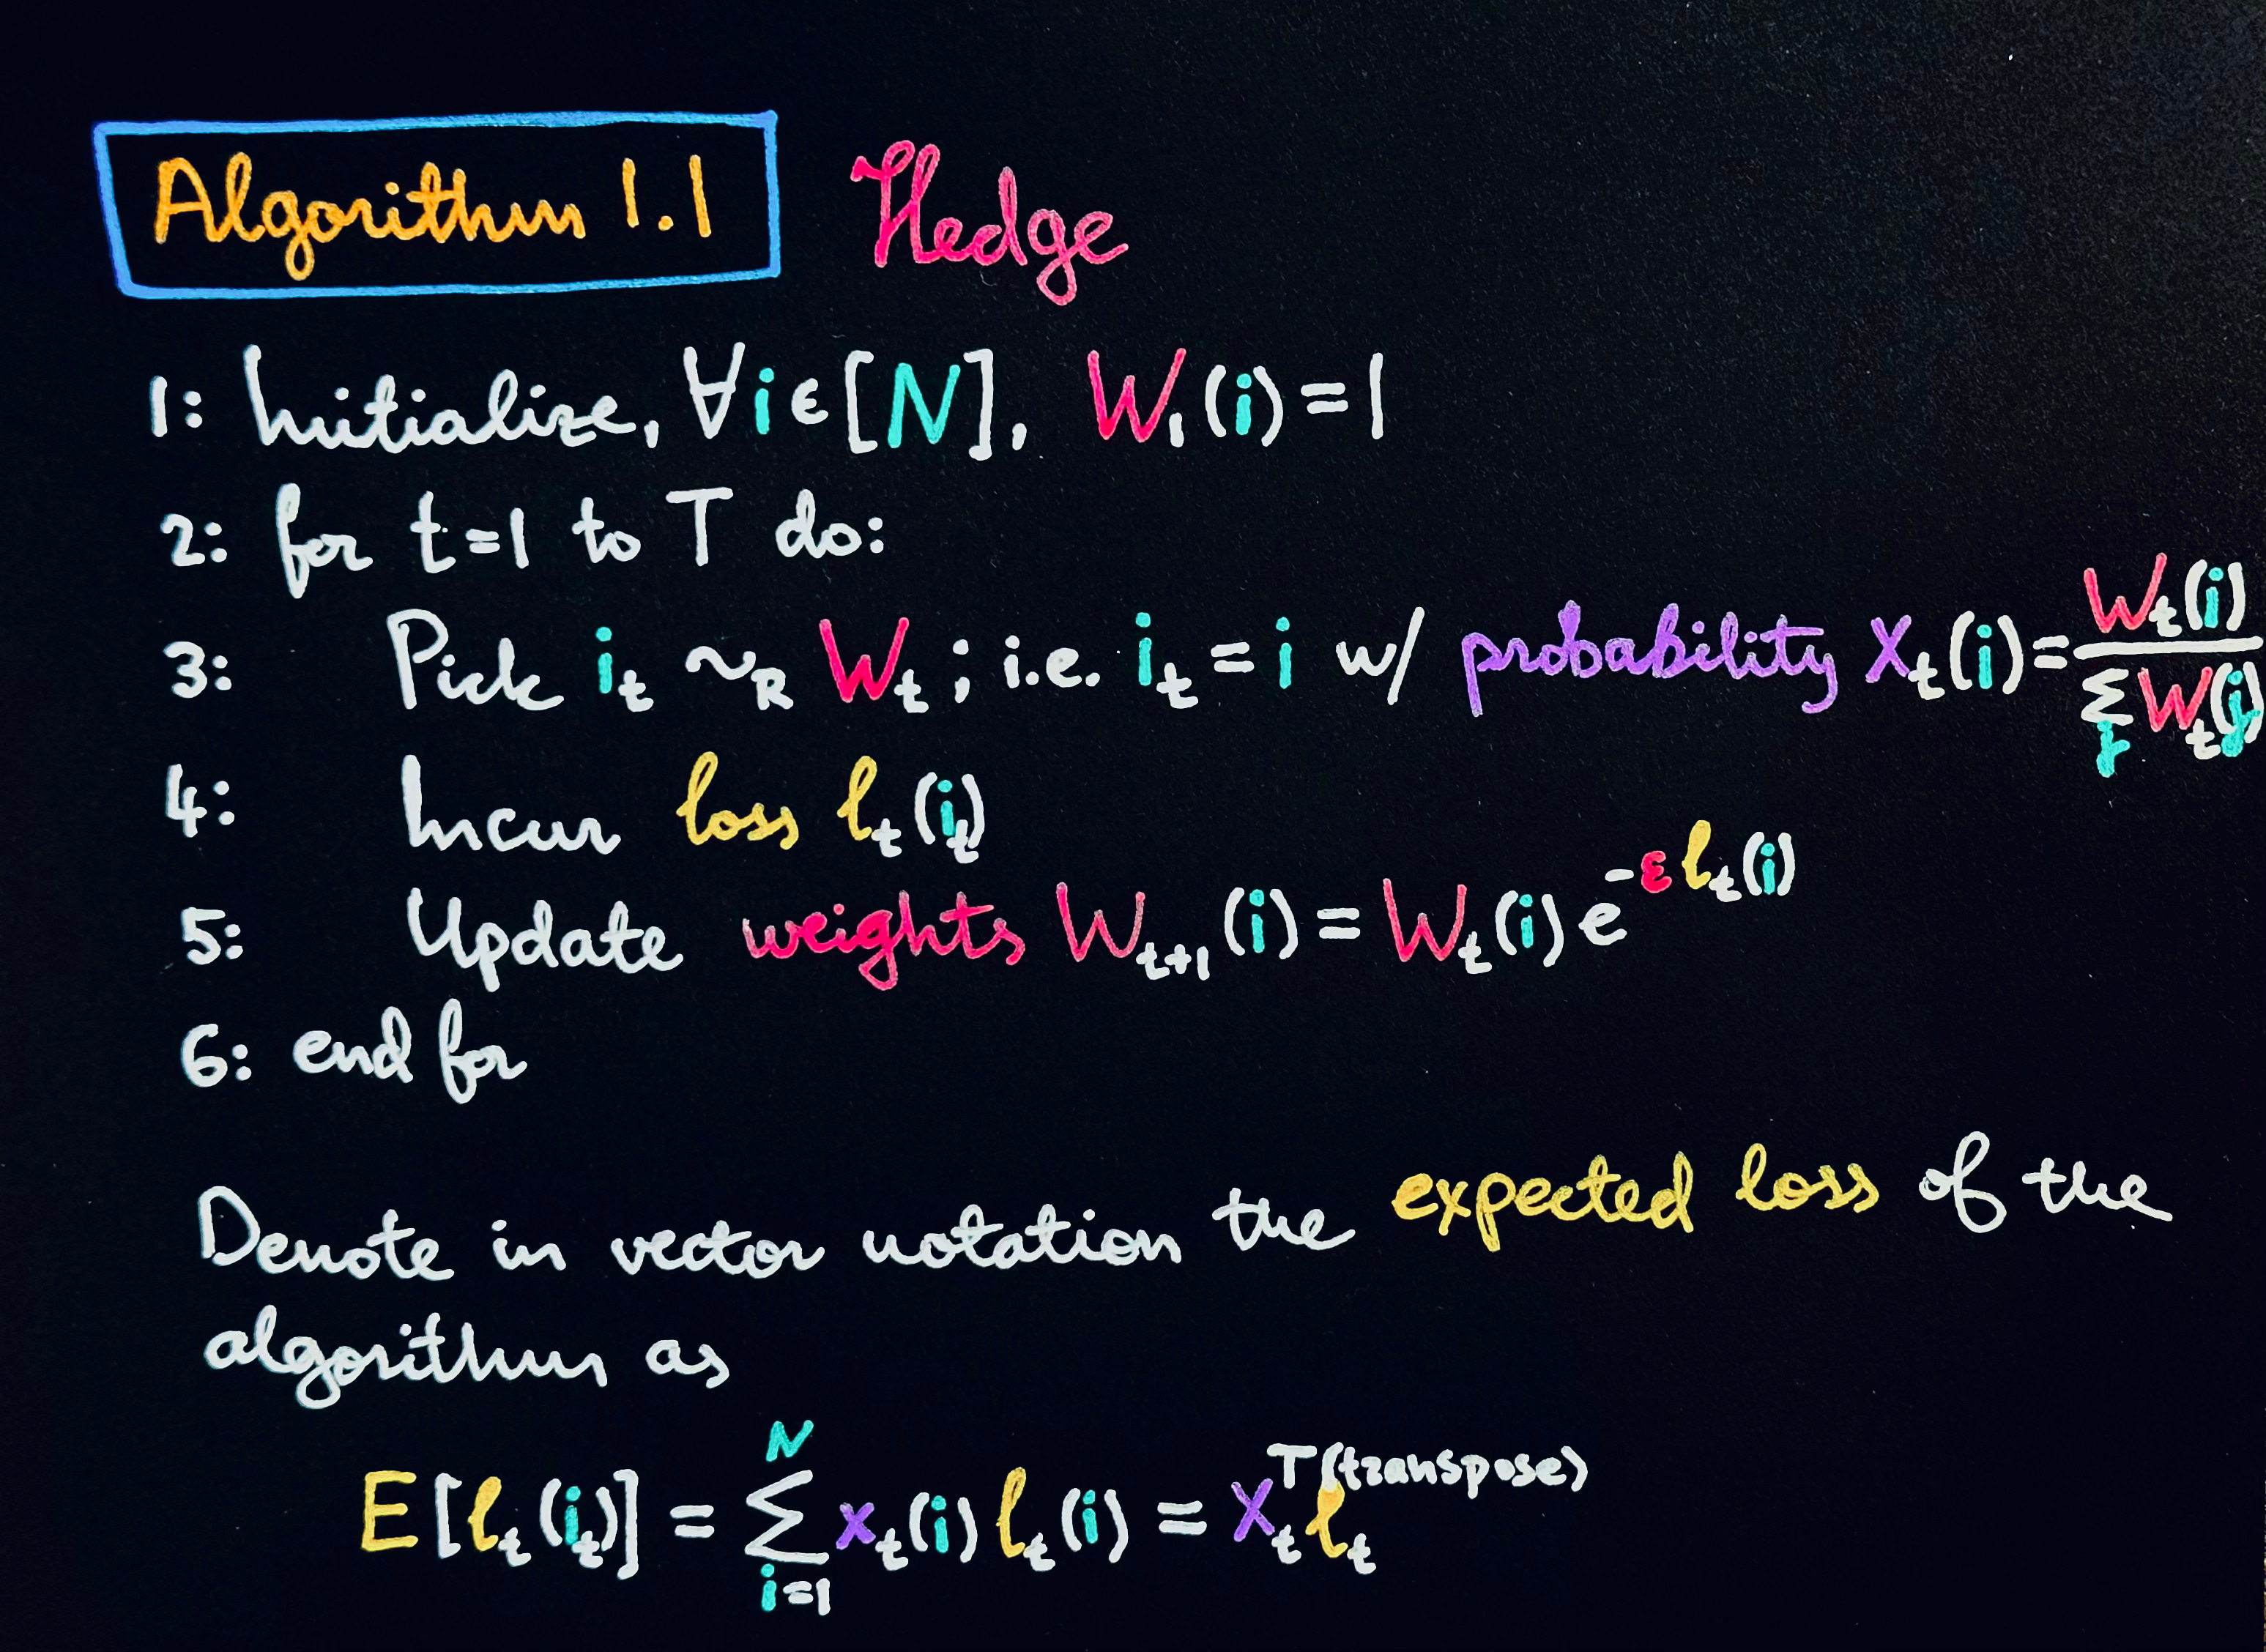 Algorithm 1.1 Hedge
1: Initialize, ∀i∈[N], W₁(i)=1
2: for t=1 to T do:
3: Pick i_t ~_R W_t; i.e. i_t = i w/ probability x_t(i) = W_t(i) / Σ_j W_t(j)
4: Incur loss l_t(i_t)
5: Update weights W_{t+1}(i) = W_t(i) e^{-ε l_t(i)}
6: end for
Denote in vector notation the expected loss of the
algorithm as
E[l_t(i_t)] = Σ_{i=1}^{N} x_t(i) l_t(i) = x_t^{T(transpose)} l_t